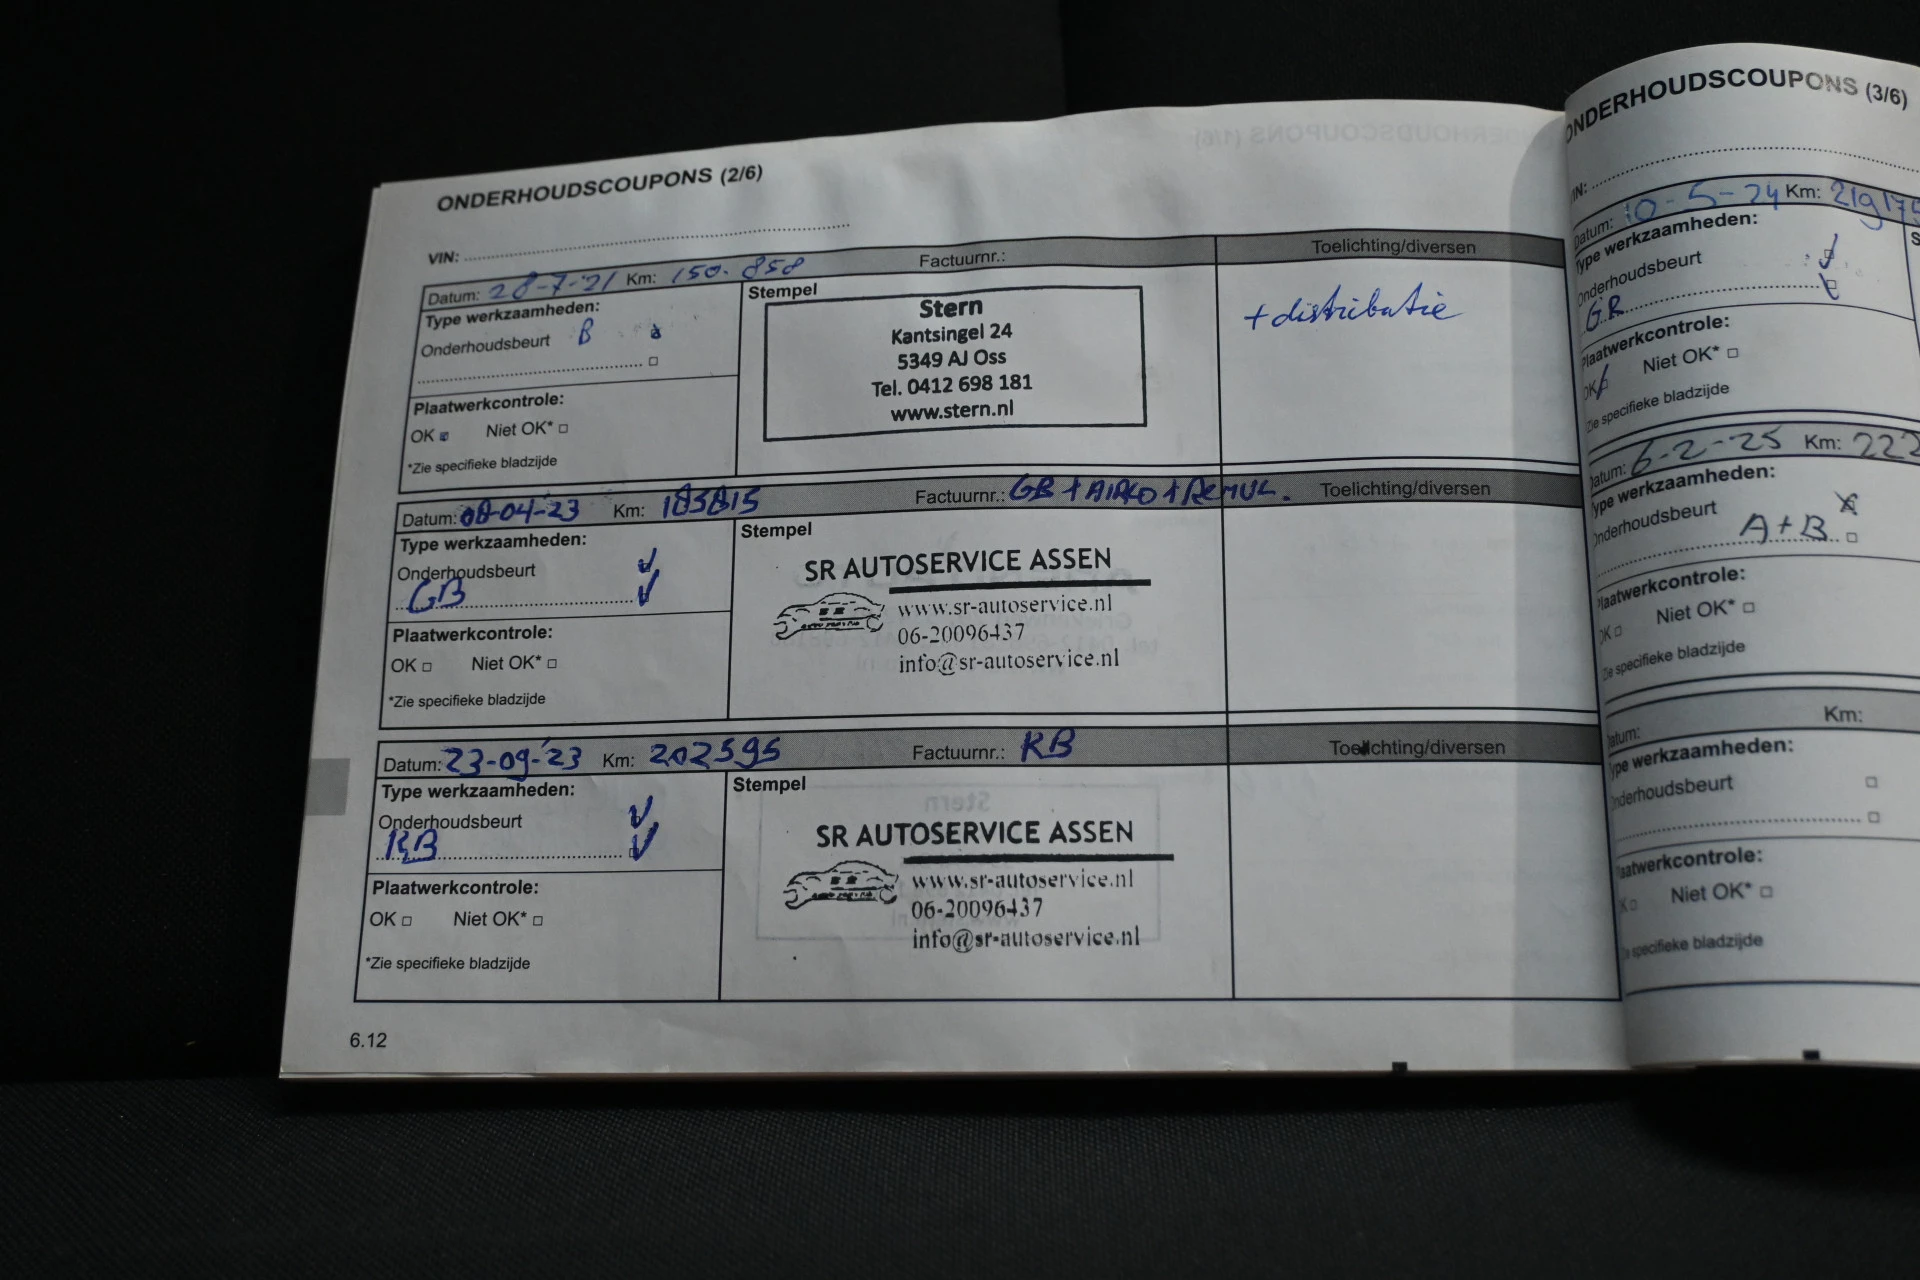 ONDERHOUDSCOUPONS (2/6)
VIN:
Datum: 28-7-'21 Km: 150.858 Factuurnr.: Toelichting/diversen
Type werkzaamheden:
Onderhoudsbeurt B
Plaatwerkcontrole:
OK Niet OK*
*Zie specifieke bladzijde
Stempel
Stern
Kantsingel 24
5349 AJ Oss
Tel. 0412 698 181
www.stern.nl
+ distributie
Datum: 08-04-23 Km: 183815 Factuurnr.: GB + AIRCO + REMVL. Toelichting/diversen
Type werkzaamheden:
Onderhoudsbeurt
GB
Plaatwerkcontrole:
OK Niet OK*
*Zie specifieke bladzijde
Stempel
SR AUTOSERVICE ASSEN
www.sr-autoservice.nl
06-20096437
info@sr-autoservice.nl
Datum: 23-09-'23 Km: 202595 Factuurnr.: KB Toelichting/diversen
Type werkzaamheden:
Onderhoudsbeurt
KB
Plaatwerkcontrole:
OK Niet OK*
*Zie specifieke bladzijde
Stempel
SR AUTOSERVICE ASSEN
www.sr-autoservice.nl
06-20096437
info@sr-autoservice.nl
6.12
ONDERHOUDSCOUPONS (3/6)
Datum: 10-5-24 Km: 219175
Type werkzaamheden:
Onderhoudsbeurt
Plaatwerkcontrole:
OK Niet OK*
Zie specifieke bladzijde
Datum: 6-2-25 Km: 222
Type werkzaamheden:
Onderhoudsbeurt
A+B
Plaatwerkcontrole:
OK Niet OK*
Zie specifieke bladzijde
Datum: Km:
Type werkzaamheden:
Onderhoudsbeurt
Plaatwerkcontrole:
Niet OK*
specifieke bladzijde